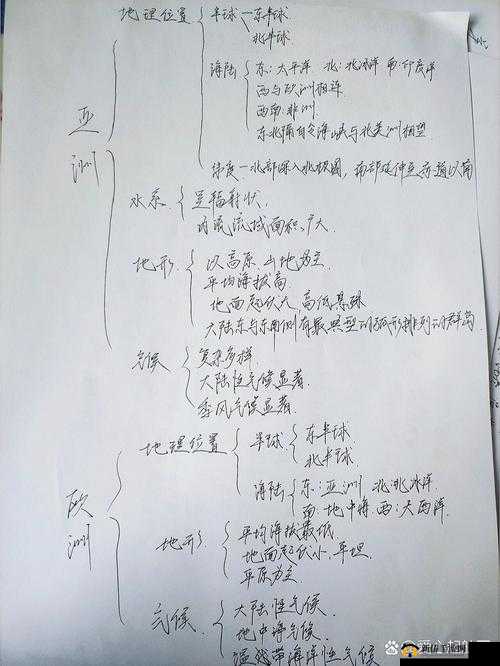 亚洲
地理位置
半球—东半球
北半球
海陆
东:太平洋 北:北冰洋 南:印度洋
西与欧洲相连
西南:非洲
东北隔白令海峡与北美洲相望
纬度—北部深入北极圈,南部延伸至赤道以南
水系
呈辐射状
内流流域面积广大
地形
以高原 山地为主
平均海拔高
地面起伏大,高低悬殊
大陆东与东南侧有最典型的弧形排列的群岛
气候
复杂多样
大陆性气候显著
季风气候显著
欧洲
地理位置
半球
东半球
北半球
海陆
东:亚洲 北:北冰洋
南:地中海 西:大西洋
地形
平均海拔最低
地面起伏小,平坦
平原为主
气候
大陆性气候
地中海气候
温带海洋性气候